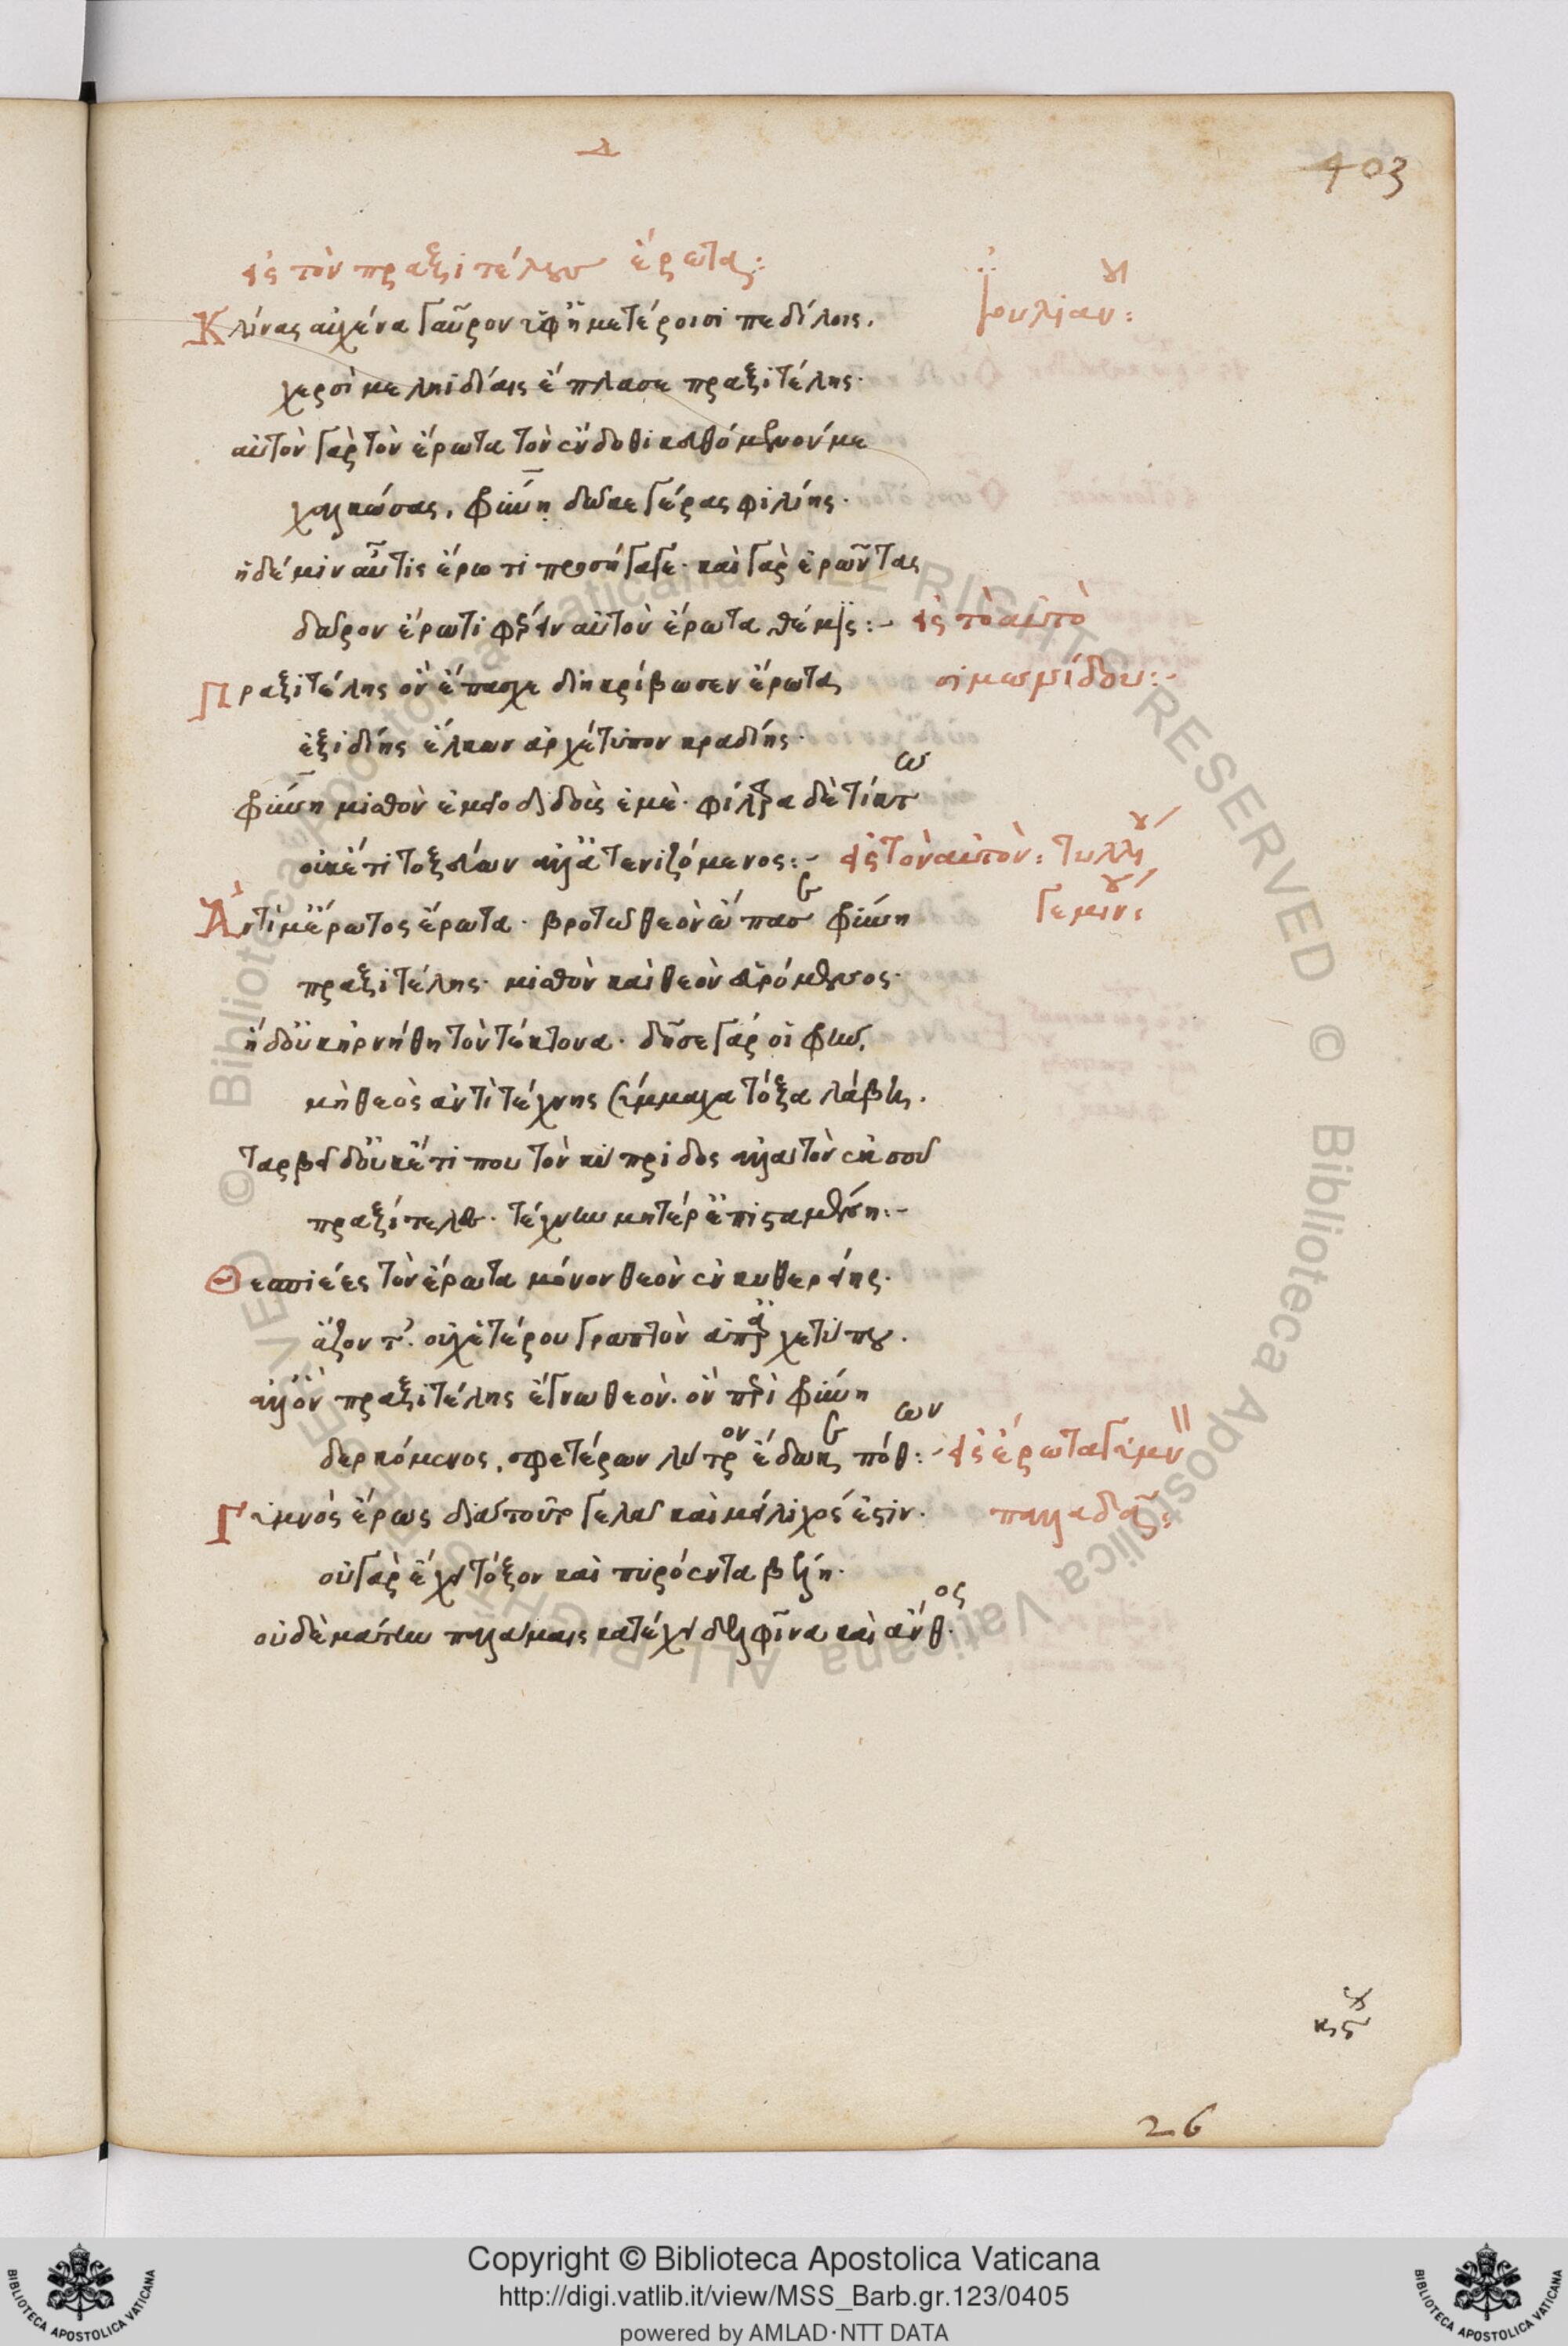 λ
403
εἰς τὸν πραξιτέλους ἔρωτα:
ἰουλιανοῦ:
Κλίνας αὐχένα γαῦρον ὑφ' ἡμετέροισι πεδίλοις.
χερσί με ληιδίαις ἔπλασε πραξιτέλης.
αὐτὸν γὰρ τὸν ἔρωτα τὸν ἔνδοθι κευθόμενόν με
χαλκώσας, φρύνῃ δῶκε γέρας φιλίης.
ἡ δέ μιν αὖτις ἔρωτι προσήγαγε. καὶ γὰρ ἐρῶντας
δῶρον ἔρωτι φέρειν αὐτὸν ἔρωτα θέμις:- εἰς τὸ αὐτὸ
Πραξιτέλης ὃν ἔπασχε διηκρίβωσεν ἔρωτα σιμωνίδου:-
ἐξ ἰδίης ἕλκων ἀρχέτυπον κραδίης.
φρύνῃ μισθὸν ἐμεῖο διδοὺς ἐμέ. φίλτρα δὲ τίκτω
οὐκέτι τοξεύων ἀλλ' ἀτενιζόμενος:- εἰς τὸν αὐτὸν: τυλλίου
Ἀντί μ' ἔρωτος ἔρωτα. βροτῷ θεὸν ὤπασε φρύνη γεμίνου:
πραξιτέλης. μισθὸν καὶ θεὸν εὑρόμενος.
ἡ δ' οὐκ ἠρνήθη τὸν τέκτονα. δεῖσε γάρ οἱ φρὴν,
μὴ θεὸς ἀντὶ τέχνης σύμμαχα τόξα λάβῃ.
ταρβεῖ δ' οὐκέτι που τὸν κύπριδος ἀλλὰ τὸν ἐκ σοῦ
πραξίτελες. τέχνην μητέρ' ἐπισταμένη:-
Θεσπιέες τὸν ἔρωτα μόνον θεὸν ἐν κυθερείης.
ἅζοντ'. οὐχ ἑτέρου γραπτὸν ἀπ' ἀρχετύπου.
ἀλλ' ὃν πραξιτέλης ἔγνω θεὸν. ὃν περὶ φρύνῃ
δερκόμενος, σφετέρων λύτρον ἔδωκε πόθων:- εἰς ἔρωτα γυμνὸν
Γυμνὸς ἔρως διὰ τοῦτο γελᾷ καὶ μείλιχός ἐστιν. παλλαδᾶ:
οὐ γὰρ ἔχει τόξον καὶ πυρόεντα βέλη.
οὐδὲ μάτην παλάμαις κατέχει δελφῖνα καὶ ἄνθος.
26
Copyright © Biblioteca Apostolica Vaticana
http://digi.vatlib.it/view/MSS_Barb.gr.123/0405
powered by AMLAD·NTT DATA